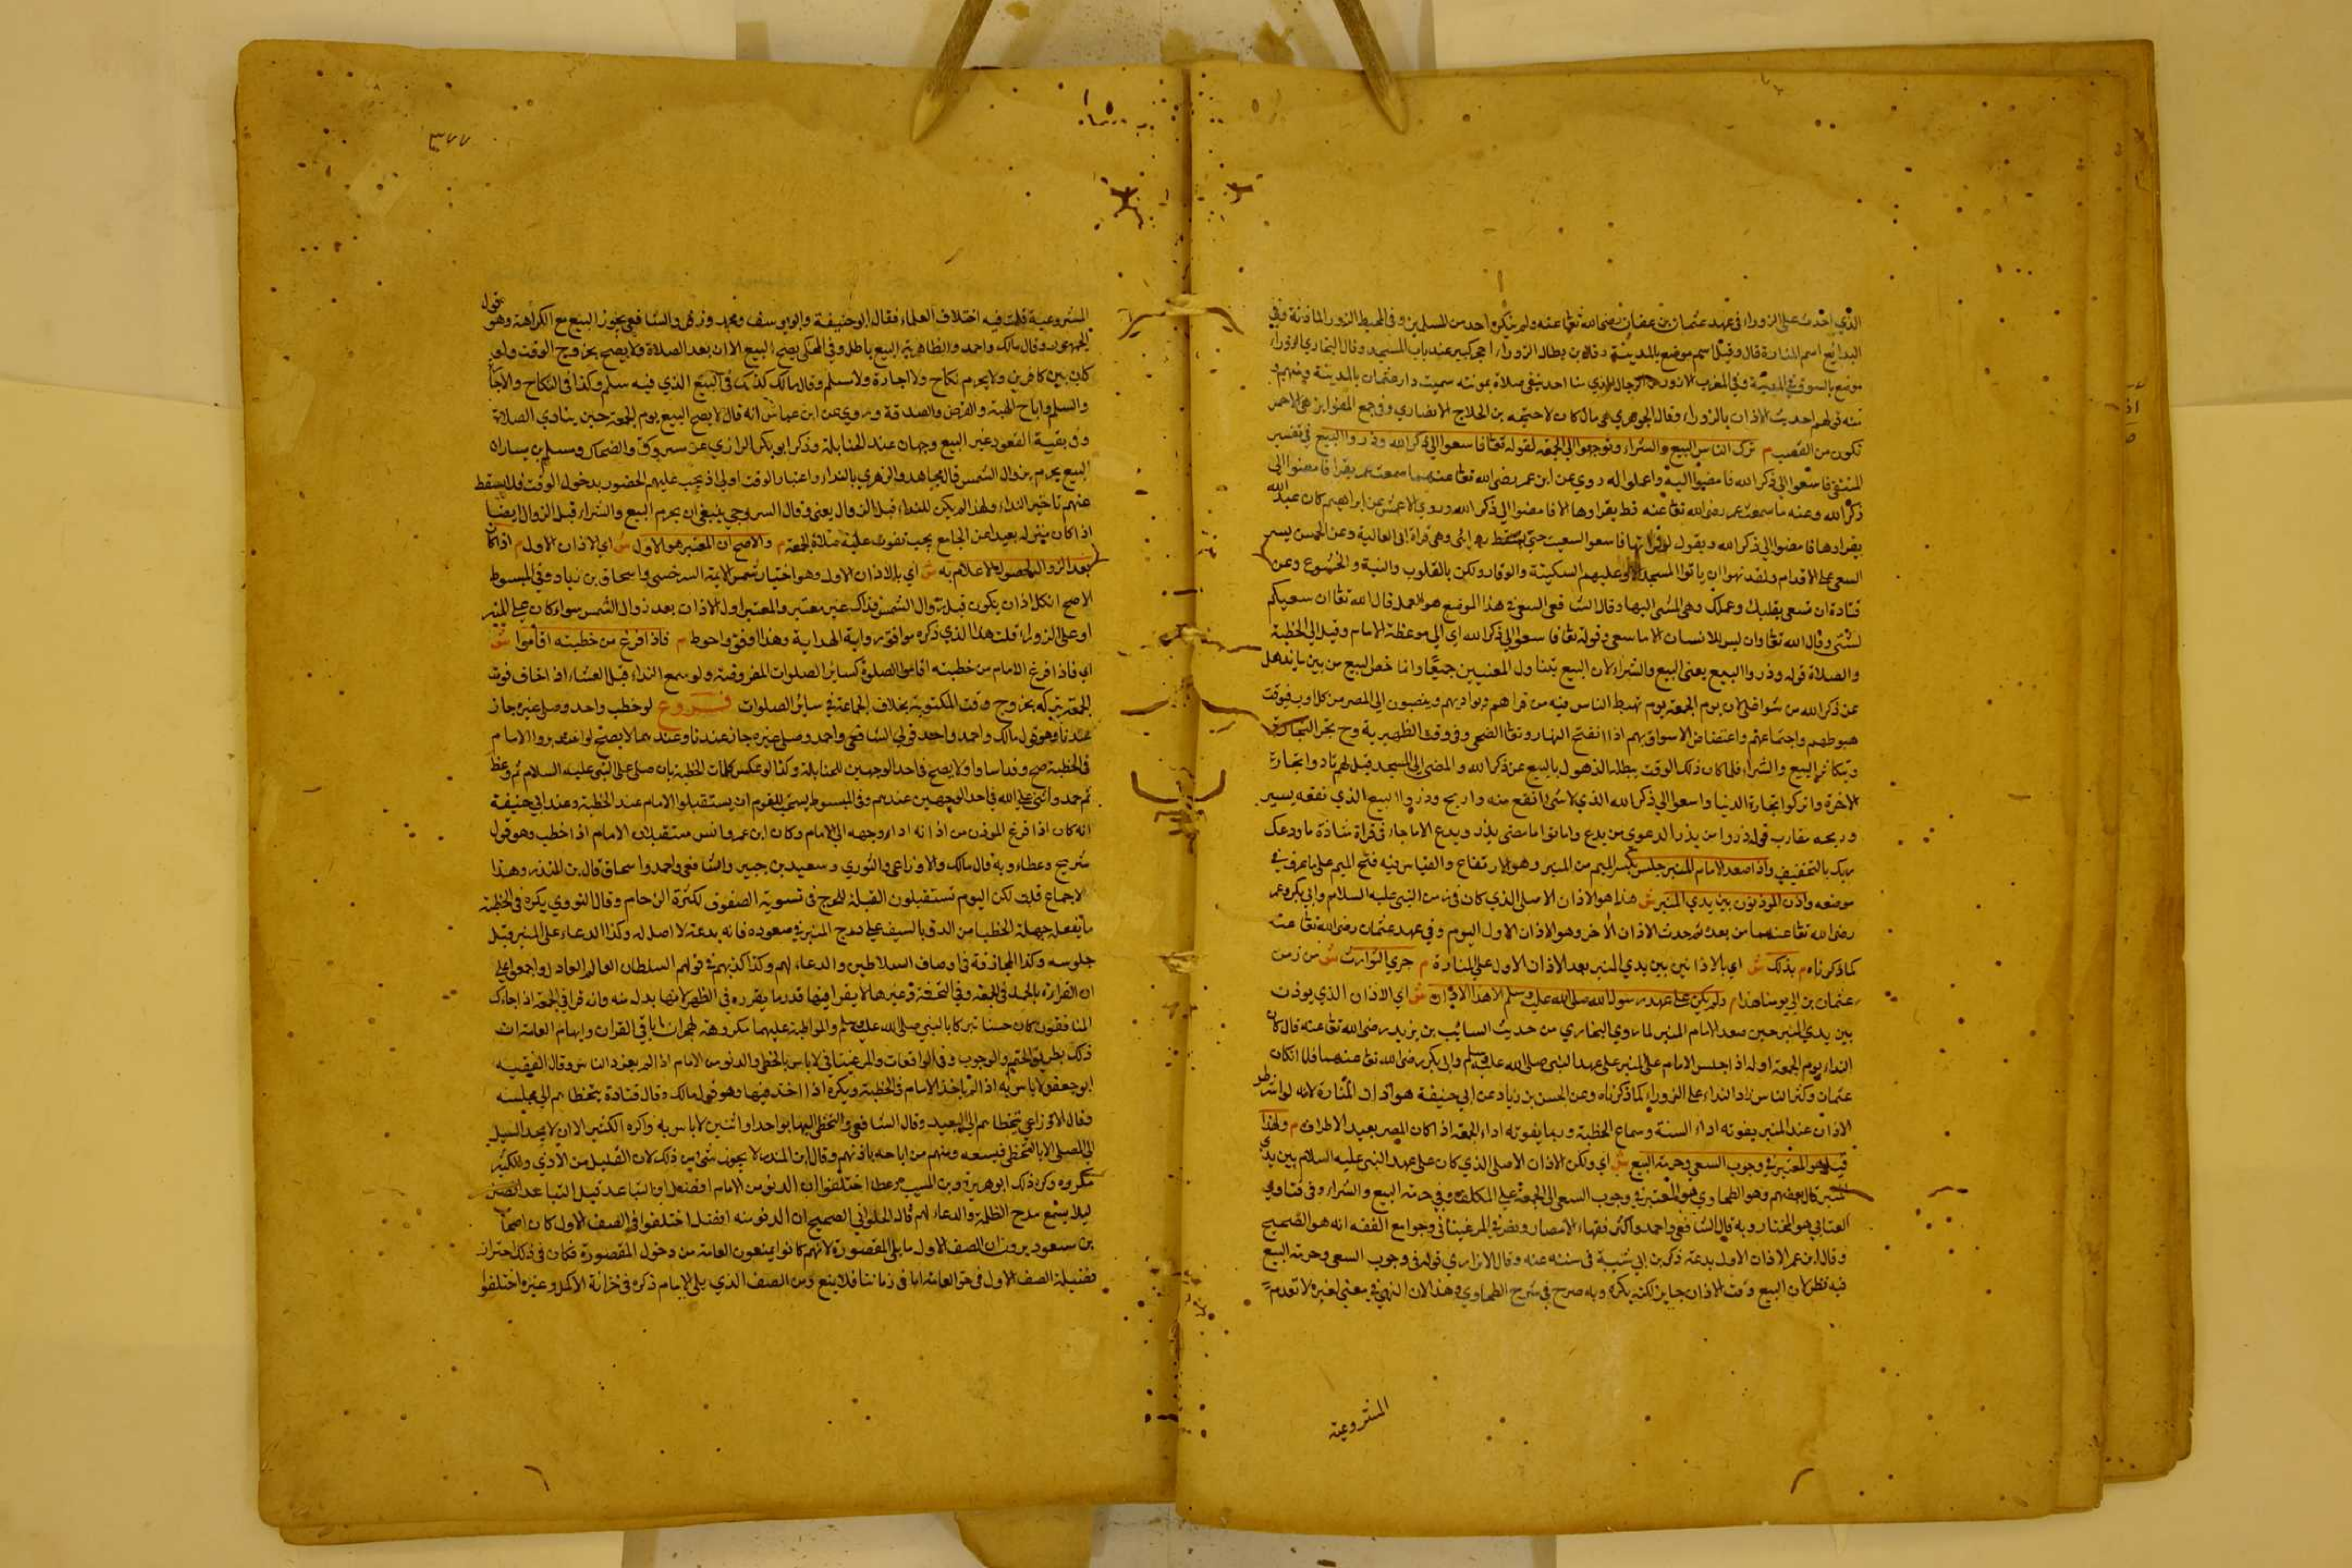 الذي احدث على الزوراء في عهد عثمان بن عفان رضي الله تعالى عنه ولم ينكره احد من المسلمين وفي المحيط الزوراء الماذنة وفي
البدائع اسم المنارة قال وقيل اسم موضع بالمدينة وقال ابن بطال الزوراء حجر كبير عند باب المسجد وقال البخاري الزوراء
موضع بالسوق في المدينة وفي المغرب
تكون من القصب م ترك الناس البيع والشراء وتوجهوا الى الجمعة لقوله تعالى فاسعوا الى ذكر الله وذروا البيع في تفسير
النسفي فاسعوا الى ذكر الله فامضوا اليه واعملوا له روي عن ابن عمر رضي الله تعالى عنهما سمعت عمر يقرا فامضوا الى
ذكر الله وعنه ما سمعت عمر رضي الله تعالى عنه قط يقراوها الا فامضوا الى ذكر الله وروي الاعمش عن ابراهيم كان عبد الله
يقراوها فامضوا الى ذكر الله ويقول لو قراتها فاسعوا لسعيت حتى يسقط ردائي وهي قراة ابي العالية وعن الحسن ليس
السعي على الاقدام ولقد نهوا ان ياتوا المسجد الا وعليهم السكينة والوقار ولكن بالقلوب والنية والخشوع وعن
قتادة ان تسعى بقلبك وعملك وهي المشي اليها وقال الشافعي السعي في هذا الموضع هو العمل قال الله تعالى ان سعيكم
لشتى وقال الله تعالى وان ليس للانسان الا ما سعى وقوله تعالى فاسعوا الى ذكر الله اي الى موعظة الامام وقيل الى الخطبة
والصلاة قوله وذروا البيع يعني البيع والشراء لان البيع يتناول المعنيين جميعا وانما خص البيع من بين ما يذهل
عن ذكر الله من شواغل لان يوم الجمعة يوم تهبط الناس فيه من قراهم وبواديهم وينصبون الى المصر من كل اوب فوقت
هبوطهم واجتماعهم واغتصاص الاسواق بهم اذا انتفخ النهار وتعالى الضحى وفي وقت الظهيرة وح تحر التجارة
ويتكاثر البيع والشراء فلما كان ذلك الوقت يبطله الذهول بالبيع عن ذكر الله والمضي الى المسجد قيل لهم بادروا تجارة
الاخرة واتركوا تجارة الدنيا واسعوا الى ذكر الله الذي لا شي انفع منه واربح وذروا البيع الذي نفعه يسير
وربحه مقارب قوله ذروا من يذر الدعوى من يدع واماتوا ماضي يذر ويدع الا ما جاء في قراة شاذة ما ودعك
ربك بالتخفيف واذا صعد الامام المنبر جلس بكسر الميم من المنبر وهو الارتفاع والقياس فيه فتح الميم على ما عرف في
موضعه واذن الموذنون بين يدي المنبر ش هذا هو الاذان الاصلي الذي كان في زمن النبي عليه السلام وابي بكر وعمر
رضي الله تعالى عنهما من بعده ثم حدث الاذان الاخر وهو الاذان الاول اليوم وفي عهد عثمان رضي الله تعالى عنه
كما ذكرناه م بذلك ش اي بالاذانين بين يدي المنبر بعد الاذان الاول على المنارة م جرى التوارث ش من زمن
عثمان بن الى يومنا هذا م ولم يكن على عهد رسول الله صلى الله عليه وسلم الا هذا الاذان ش اي الاذان الذي يوذن
بين يدي المنبر حين صعد الامام المنبر لما روي البخاري من حديث السائب بن يزيد رضي الله تعالى عنه قال كان
النداء يوم الجمعة اوله اذا جلس الامام على المنبر على عهد النبي صلى الله عليه وسلم وابي بكر رضي الله تعالى عنهما فلما ان كان
عثمان وكثر الناس زاد النداء على الزوراء كما ذكرناه وعن الحسن بن زياد عن ابي حنيفة هو اذان المنارة لانه لو انتظر
الاذان عند المنبر يفوته اداء السنة وسماع الخطبة وربما يفوته اداء الجمعة اذا كان المصر بعيد الاطراف م ولهذا
قيل هو المعتبر في وجوب السعي وحرمة البيع ش اي ولكن الاذان الاصلي الذي كان على عهد النبي عليه السلام بين يدي
المنبر قال بعضهم وهو الطحاوي هو المعتبر في وجوب السعي الى الجمعة على المكلف وفي حرمة البيع والشراء وفي فتاوي
العتابي هو المختار وبه قال الشافعي واحمد واكثر فقهاء الامصار ونص في المرغيناني وجوامع الفقه انه هو الصحيح
وقال ابن عمر الاذان الاول بدعة ذكره ابن ابي شيبة في سننه عنه وقال الاترازي قوله في وجوب السعي وحرمة البيع
فيه نظر لان البيع وقت الاذان جايز لكنه يكره وبه صرح في شرح الطحاوي وهذا لان النهي في معنى لغيره لا تعدم
المشروعية
٣٧٧
المشروعية قلت فيه اختلاف العلماء فقال ابو حنيفة وابو يوسف ومحمد وزفر والشافعي يجوز البيع مع الكراهة وهو قول
الجمهور وقال مالك واحمد والظاهرية البيع باطل وفي المحكى يفسخ البيع الا ان بعد الصلاة ولا يصح بخروج الوقت ولو
كان بين كافرين ولا يحرم نكاح ولا اجارة ولا سلم وقال مالك كذلك في البيع الذي فيه سلم وكذا في النكاح والاجا
والسلم واباح الهبة والقرض والصدقة وروي عن ابن عباس انه قال لا يصح البيع يوم الجمعة حين ينادي الصلاة
وفي بقية العقود غير البيع وجهان عند الحنابلة وذكر ابو بكر الرازي عن مسروق والضحاك ومسلم بن يسار ان
البيع يحرم بزوال الشمس قال مجاهد والزهري بالنداء واعتبار الوقت اولى اذ يجب عليهم الحضور بدخول الوقت فلا يسقط
عنهم تاخير النداء ولهذا لم يكن للنداء قبل الزوال يعني وقال السروجي ينبغي ان يحرم البيع والشراء قبل الزوال ايضا
اذا كان منزله بعيدا من الجامع بحيث تفوت عليه صلاة الجمعة م والاصح ان المعتبر هو الاول ش اي الاذان الاول م اذا كان
بعد الزوال لحصول الاعلام به ش اي بالاذان الاول وهو اختيار شمس الايمة السرخسي واسحاق بن زياد وفي المبسوط
الاصح ان كل اذان يكون قبل زوال الشمس فذاك غير معتبر والمعتبر اول الاذان بعد زوال الشمس سواء كان على المنبر
او على الزوراء قلت هذا الذي ذكره موافق رواية الهداية وهذا اوفق واحوط م فاذا فرغ من خطبته اقاموا ش
اي فاذا فرغ الامام من خطبته اقاموا الصلوة كساير الصلوات المفروضة ولو سمع النداء قبل العشاء اذا خاف فوت
الجمعة يتركه بخروج وقت المكتوبة بخلاف الجماعة في سائر الصلوات فروع لو خطب واحد وصلى غيره جاز
عندنا وهو قول مالك واحمد واحد قولي الشافعي واحمد وصلى غيره جاز عندنا وعندهما لا يصح
ثم حمد واثنى على الله في احد الوجهين عندهم وفي المبسوط يستحب للقوم ان يستقبلوا الامام عند الخطبة وعند ابي حنيفة
انه كان اذا فرغ الموذن من اذانه ادار وجهه الى الامام وكان ابن عمر وانس مستقبلان الامام اذا خطب وهو قول
شريح وعطاء وبه قال مالك والاوزاعي والثوري وسعيد بن جبير والشافعي واحمد واسحاق قال بن المنذر وهذا
لاجماع قلت لكن اليوم تستقبلون القبلة للحرج في تسوية الصفوف لكثرة الزحام وقال النووي يكره في الخطبة
ما يفعله جهلة الخطبا من الدق بالسيف على درج المنبر في صعوده فانه بدعة لا اصل له وكذا الدعاء على المنبر قبل
جلوسه وكذا المجازفة في اوصاف السلاطين والدعاء لهم وكذا كذبهم في قولهم السلطان العالم العادل واجمعوا على
ان القراءة بالجهر في الجمعة وفي التحفة وغيرها لا يقرا فيها قدر ما يقرره في الظهر لانها بدل منه وانه قرا في الجمعة اذا جاءك
المنافقون كان حسنا تبركا بالنبي صلى الله عليه وسلم والمواظبة عليهما مكروهة لهجران باقي القران وايهام العامة ان
ذلك بطريق الحتم والوجوب وفي الواقعات والمرغيناني لا باس بالتخطي والدنو من الامام اذا لم يعزد الناس وقال الفقيه
ابو جعفر لا باس به اذا لم ياخذ الامام في الخطبة ويكره اذا اخذ فيها وهو قول مالك وقال قتادة يتخطاهم الى مجلسه
وقال الاوزاعي يتخطاهم الى البعيد وقال الشافعي والتخطي اليها بواحد او اثنين لا باس به واكره الكثير الا ان لا يجد السبيل
الى المصلى الا بالتخطي فيسعه ومنهم من اباحه باذنهم وقال ابن المنذر لا يجوز شي من ذلك لان القليل من الاذي والكثير
مكروه وكره ذلك ابو هريرة وبن المسيب وعطاء اختلفوا ان الدنو من الامام افضل او التباعد قيل التباعد افضل
ليلا يسمع مدح الظلمة والدعاء لهم قال الحلواني الصحيح ان الدنو منه افضل اختلفوا في الصف الاول كان اصحاب
بن مسعود يرون ان الصف الاول ما يلي المقصورة لانهم كانوا يمنعون العامة من دخول المقصورة فكان في ذلك احتراز
فضيلة الصف الاول في حق العامة اما في زماننا فلا يمنع ومن الصف الذي يلي الامام ذكره في خزانة الاكمل وغيره اختلفوا